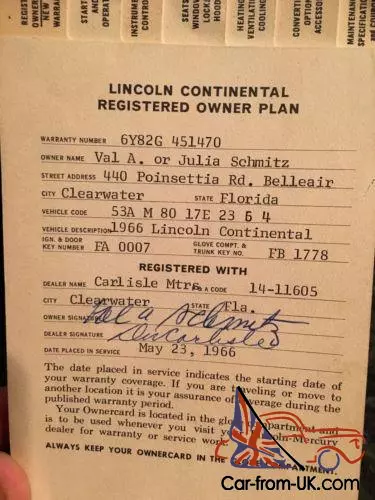 REGISTERED OWNER NEW WARRA
START AND OPERAT
INSTRUME CONTROL
SEATS WINDOW LOCKS HOOD
HEATING VENTILATI COOLING
CONVERTI OPTION ACCESSOR
MAINTENANCE SPECIFICATION
LINCOLN CONTINENTAL
REGISTERED OWNER PLAN
WARRANTY NUMBER 6Y82G 451470
OWNER NAME Val A. or Julia Schmitz
STREET ADDRESS 440 Poinsettia Rd. Belleair
CITY Clearwater STATE Florida
VEHICLE CODE 53A M 80 17E 23 6 4
VEHICLE DESCRIPTION 1966 Lincoln Continental
IGN. & DOOR KEY NUMBER FA 0007 GLOVE COMPT. & TRUNK KEY NO. FB 1778
REGISTERED WITH
DEALER NAME Carlisle Mtrs & A CODE 14-11605
CITY Clearwater STATE Fla.
OWNER SIGNATURE Val A Schmitz
DEALER SIGNATURE
DATE PLACED IN SERVICE May 23, 1966
The date placed in service indicates the starting date of
your warranty coverage. If you are traveling or move to
another location it is your assurance of coverage during the
published warranty period.
Your Ownercard is located in the glove compartment and
is to be used whenever you visit your Lincoln-Mercury
dealer for warranty or service work.
ALWAYS KEEP YOUR OWNERCARD IN THE GLOVE COMPARTMENT.
Car-from-UK.com